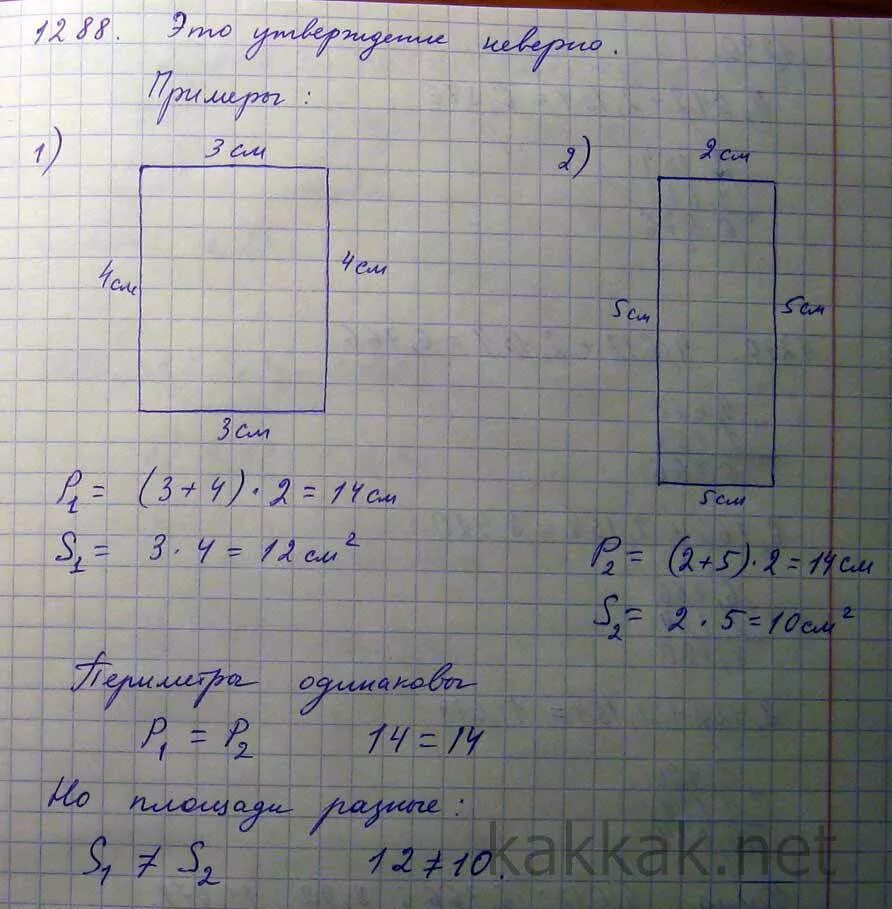 1288. Это утверждение неверно.
Примеры:
1)
3 см
4 см
4 см
3 см
P₁ = (3+4)·2 = 14 см
S₁ = 3·4 = 12 см²
2)
2 см
5 см
5 см
5 см
P₂ = (2+5)·2 = 14 см
S₂ = 2·5 = 10 см²
Периметры одинаковы
P₁ = P₂ 14 = 14
Но площади разные:
S₁ ≠ S₂ 12 ≠ 10.
kakkak.net